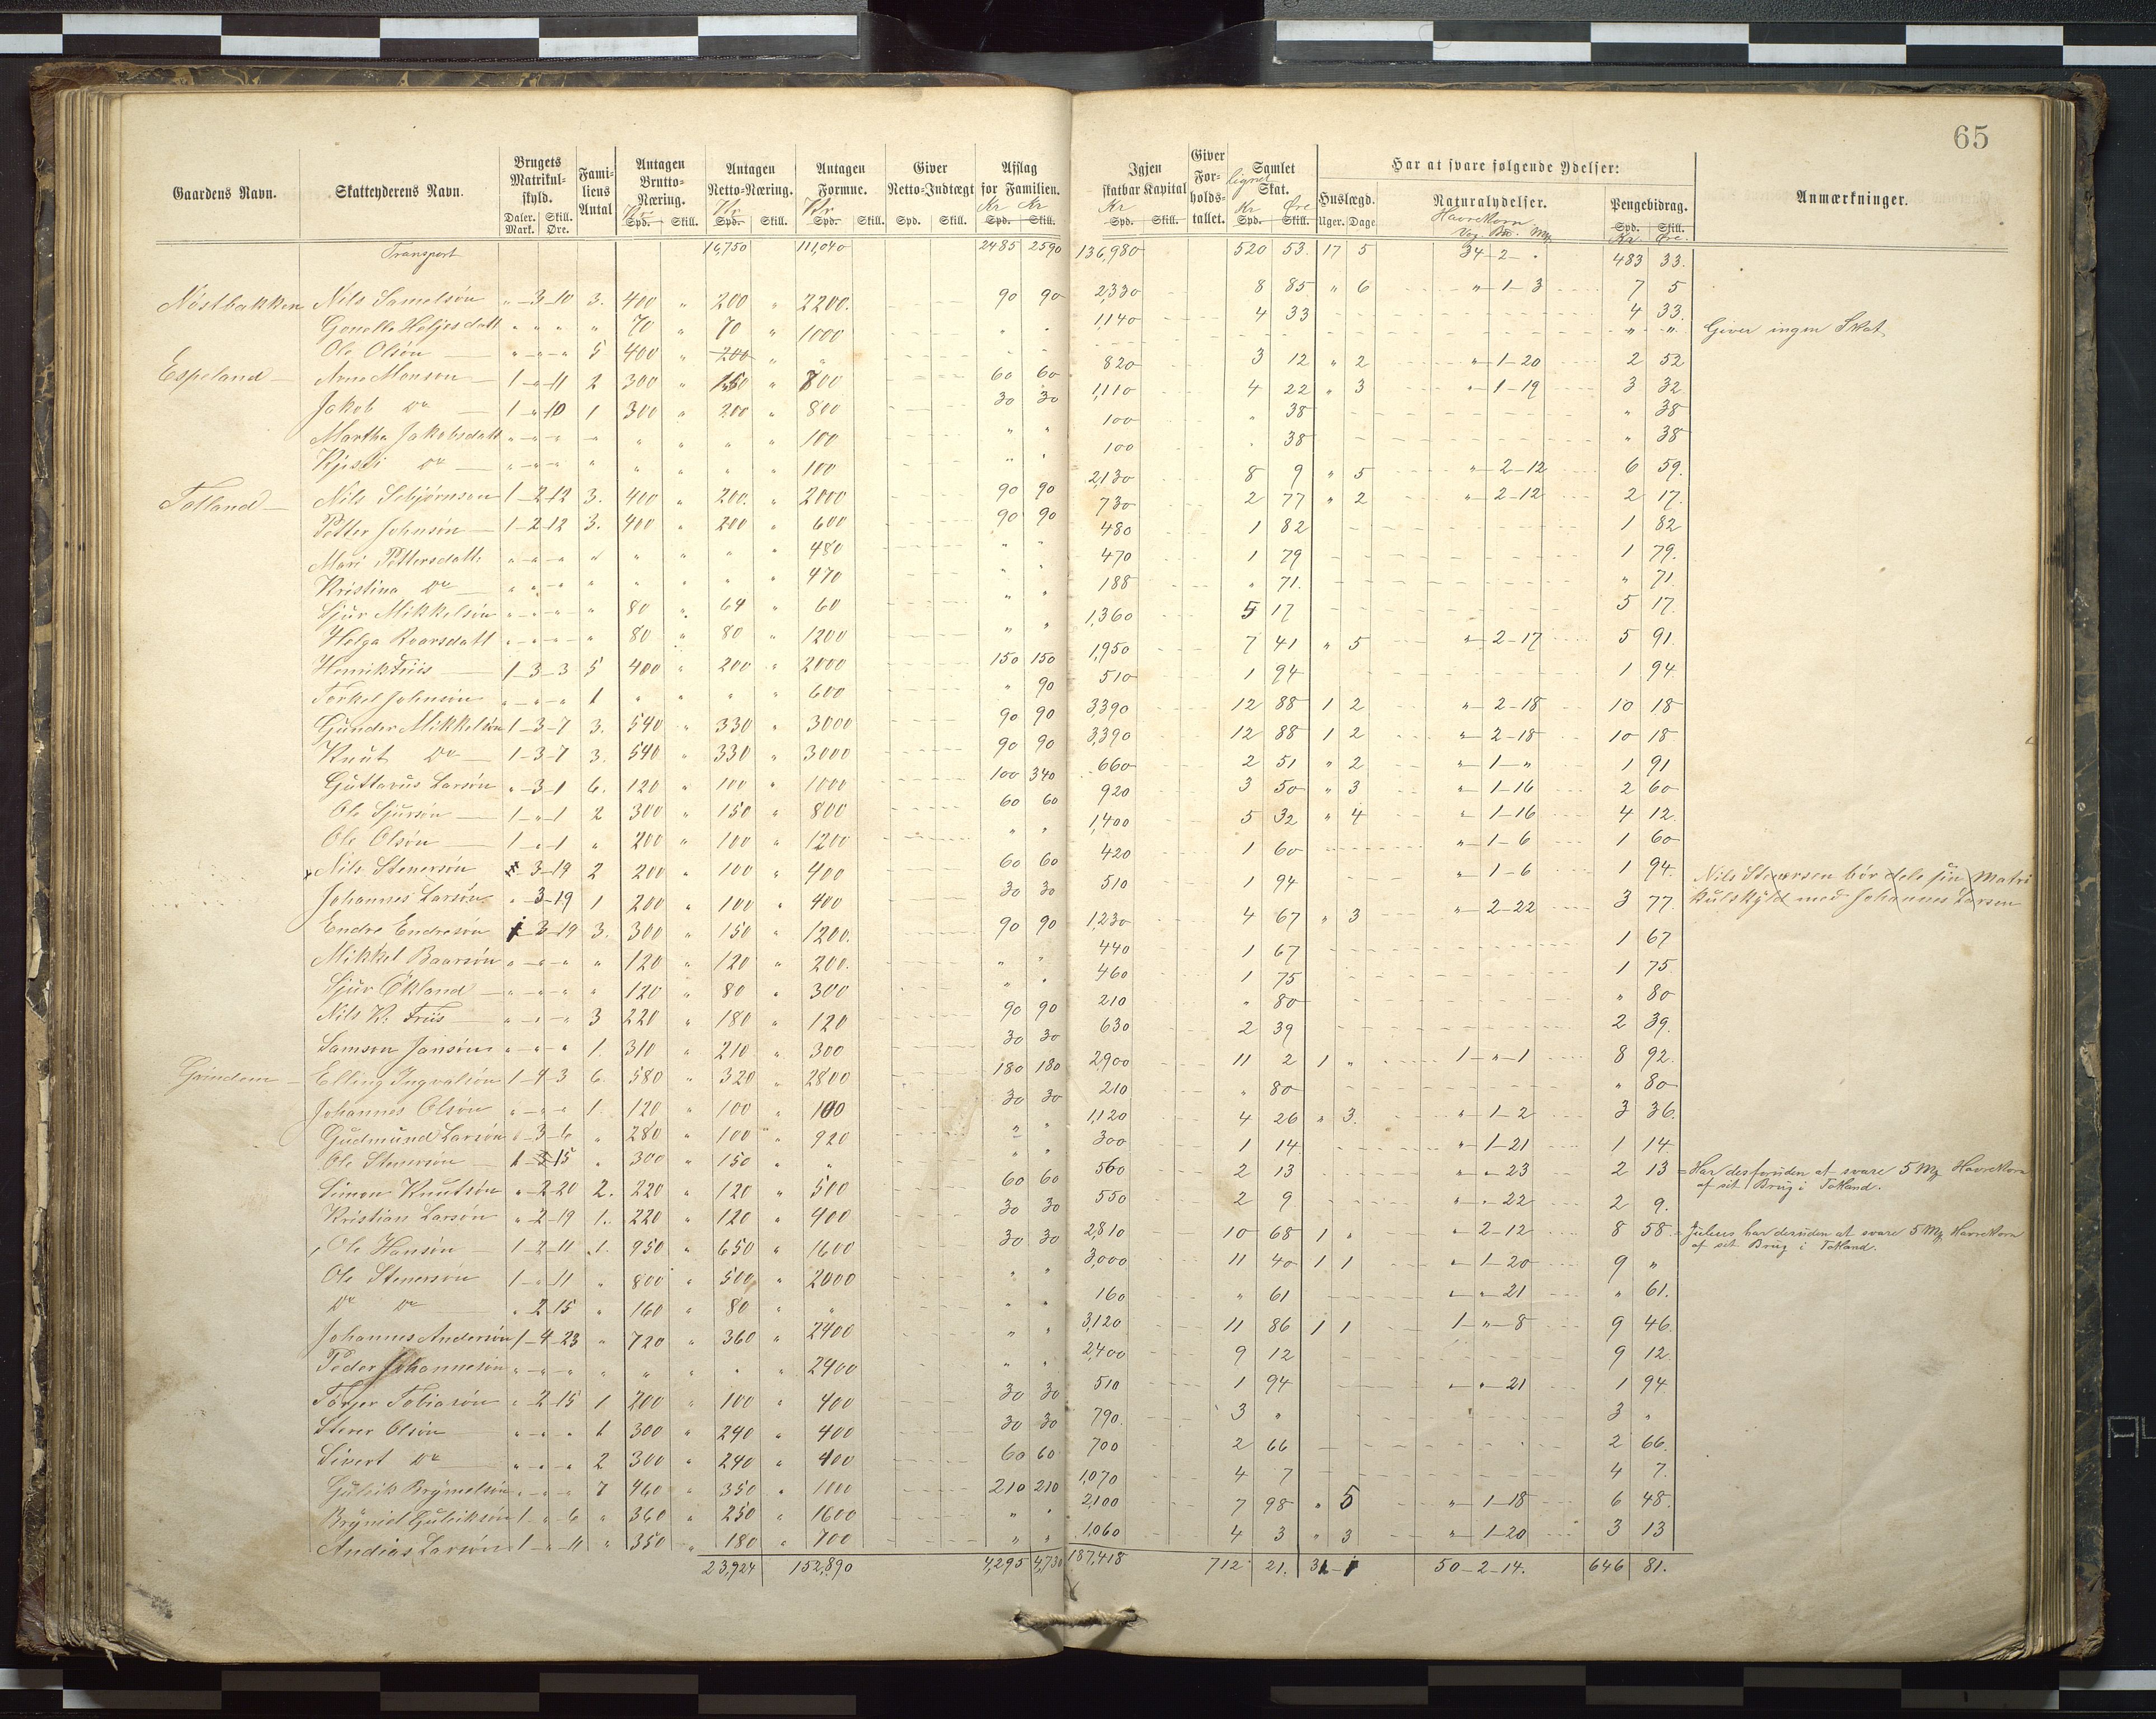 65
Gaardens Navn. Skatteyderens Navn. Brugets Matrikul-skyld. Daler. Skill. Mark. Øre. Familiens Antal Antagen Brutto-Næring. Kr Spd. Skill. Antagen Netto-Næring. Kr Spd. Skill. Antagen Formue. Kr Spd. Skill. Giver Netto-Indtægt Spd. Skill. Afslag for Familien. Kr Kr Spd. Skill. Igjen skatbar Kapital Kr Spd. Skill. Giver Forholdstallet. Samlet lignet Skat. Kr Øre Spd. Skill. Har at svare følgende Ydelser: Huslægd. Uger. Dage Naturalydelser. Havrekorn Vog. Bb. Mg. Pengebidrag. Spd. Skill. Kr. Øre. Anmærkninger.
Transport 16,750 111,040 2485 2590 136,980 520 53. 17 5 34-2-" 483 33.
Nøstbakken Nils Samelsøn "-3-10 3. 400 " 200 " 2200. 90 90 2,330 8 85 " 6 "-1-3 7 5
Heljesdatt "-"-" " 70 " 70 " 1000 " " 1,140 4 33 4 33.
Ole Olsøn "-"-" 5 400 " 200 " " " " " " Giver ingen Skat
Espeland Arne Monsøn 1-"-11 2 300 " 150 " 800 60 60 820 3 12 " 2 "-1-20 2 52
Jakob Do 1-"-10 1 300 " 200 " 800 30 30 1,110 4 22 " 3 "-1-19 3 32
Martha Jakobsdatt "-"-" " " " " " 100 " " 100 " 38 " 38
Kjesti Do "-"-" " " " " " 100 " " 100 " 38 " 38
Totland Nils Sebjørnson 1-2-12 3. 400 " 200. " 2000 90 90 2,130 8 9 " 5 "-2-12 6 59.
Petter Johnsøn 1-2-12 3. 400 " 200 " 600 90 90 730 2 77 " 2 "-2-12 2 17.
Mari Pettersdatt: "-"-" " " " " " 480 " " 480 1 82 1 82
Kristina Do "-"-" " " " " " 470 " " 470 1 79 1 79.
Sjur Mikkelsøn "-"-" " 80 " 64 " 60 " " 188 " 71. " 71
Helga Roarsdatt "-"-" " 80 " 80 " 1200 " " 1,360 5 17 5 17.
Henrik Friis 1-3-3 5 400 " 200 " 2000 150 150 1,950 7 41 " 5 "-2-17 5 91.
Torkel Johnsøn "-"-" 1 " " " " 600 " 90 510 1 94 1 94.
Gunder Mikkelsøn 1-3-7 3. 540 " 330 " 3000 90 90 3,390 12 88 1 2 "-2-18 10 18
Knut Do 1-3-7 3. 540 " 330 " 3000 90 90 3,390 12 88 1 2 "-2-18 10 18
Larsøn "-3-1 6. 120 " 100 " 1000 100 340 660 2 51 " 2 "-1-" 1 91
Ole Sjursøn 1-"-1 2 300 " 150 " 800 60 60 920 3 50 " 3 "-1-16 2 60
Ole Olsøn 1-"-1 " 200 " 100 " 1200 " " 1,400 5 32 " 4 "-1-16 4 12.
Nils Stenersøn "-3-19 2 200 " 100 " 400 60 60 420 1 60 "-1-6 1 60
Johannes Larsøn "-3-19 1 200 " 100 " 400 30 30 510 1 94 "-1-6 1 94. Nils Stenersen bør dele sin Matri
kulskyld med Johannes Larsen
Endre Endresøn 1-3-19 3. 300 " 150 " 1200. 90 90 1,230 4 67 " 3 "-2-22 3 77.
Mikkel Baarsøn "-"-" " 120 " 120 " 200. " " 440 1 67 1 67
Sjur Økland "-"-" " 120 " 80 " 300 " " 460 1 75 1 75.
Nils K. Friis "-"-" 3 220 " 180 " 120 90 90 210 " 80 " 80
Samson Jansøn "-"-" 1. 310 " 210 " 300 30 30 630 2 39 2 39.
Grindem Elling Ingvalsøn 1-4-3 6. 580 " 320 " 2800 180 180 2,900 11 2 1 " 1-"-1 8 92.
Johannes Olsøn "-"-" 1. 120 " 100 " 100 30 30 210 " 80 " 80
Gudmund Larsøn "-3-6 " 280 " 100 " 920 " " 1,120 4 26 " 3. "-1-2 3 36.
Ole Stenersøn 1-3-15 " 300 " 150 " " " " 300 1 14 "-1-21 1 14
Simon Knutsøn "-2-20 2. 220 " 120 " 500 60 60 560 2 13 "-"-23 2 13 = Har desforuden at svare 5 Mg Havrekorn
af sit Brug i Totland.
Kristian Larsøn "-2-19 1. 220 " 120 " 400 30 30 550 2 9 "-"-22 2 9.
Ole Hansøn 1-2-11 1. 950 " 650 " 1600 30 30 2,810 10 68 1 " "-2-12 8 58 = Julius har desuden at svare 5 Mg Havrekorn
af sit Brug i Totland.
Ole Stenersøn 1-"-11 " 800 " 500 " 2000 " " 3,000 11 40 1 1 "-1-20 9 "
Do Do "-2-15 " 160 " 80 " " " " 160 " 61 "-"-21 " 61.
Johannes Andersøn 1-4-23 " 720 " 360 " 2400 " " 3,120 11 86 1 1 1-"-8 9 46.
Peder Johannesøn "-"-" " " " " " 2400 " " 2,400 9 12 9 12.
Torjer Tobiasøn "-2-15 1 200 " 100 " 400 30 30 510 1 94 "-"-21 1 94
Stener Olsøn "-"-" 1 300 " 240 " 400 30 30 790. 3 " 3 "
Sivert Do "-"-" 2 300 " 240 " 400 60 60 700 2 66 2 66.
Guleik Brynielsøn "-"-" 7 460 " 350 " 1000 210 210 1,070 4 7 4 7.
Bryniel Guleiksøn 1-"-6 " 360 " 250 " 1600 " " 2,100 7 98 " 5 "-1-18 6 48.
Andias Larsøn 1-"-11 " 350 " 180 " 700 " " 1,060 4 3 " 3 "-1-20 3 13
23,924 152,890 4,295 4,730 187,418 712 21. 31-1 50-2-14. 646 81.